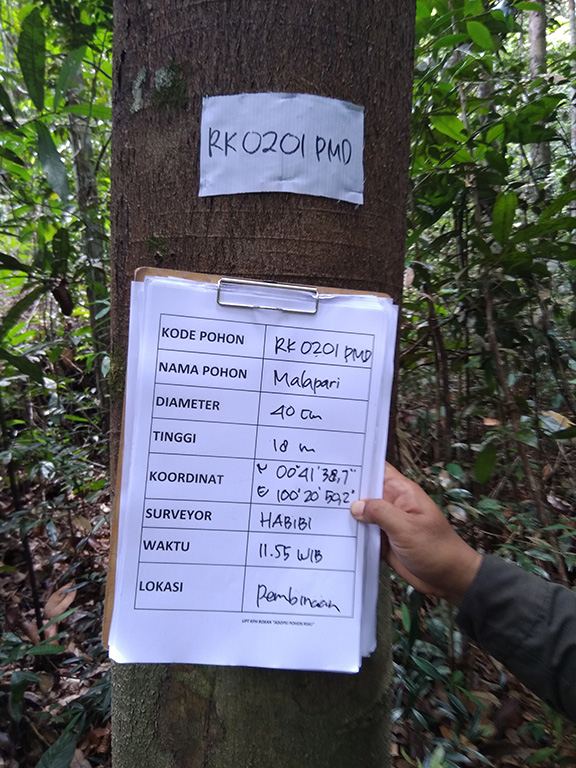 RK0201 PMD
KODE POHON RK 0201 PMD
NAMA POHON Malapari
DIAMETER 40 cm
TINGGI 18 m
KOORDINAT N 00°41'38,7"
E 100°20'50,2"
SURVEYOR HABIBI
WAKTU 11.55 WIB
LOKASI Pembinaan